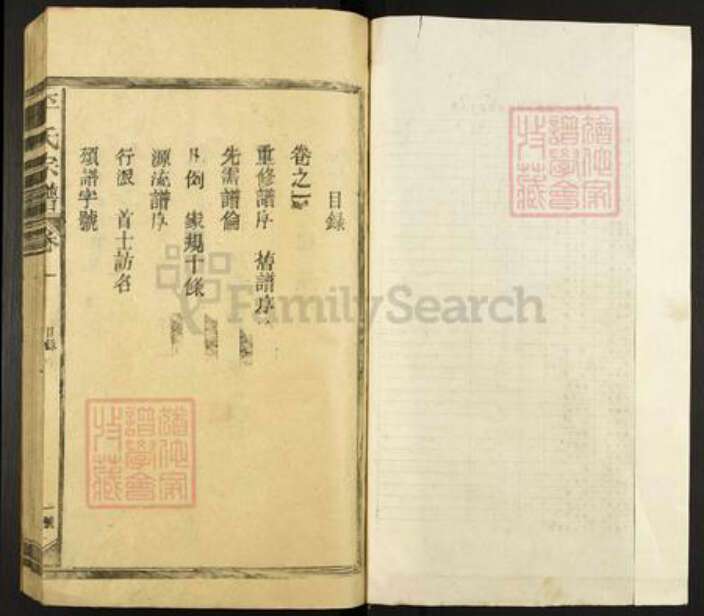 目錄
卷之一
重修譜序 舊譜序
先需譜倫
凡例 家規十條
源流譜序
行派 首士訪名
領譜字號
氏宗譜 卷一 目錄 一號
猶他家譜學會特藏
猶他家譜學會特藏
FamilySearch